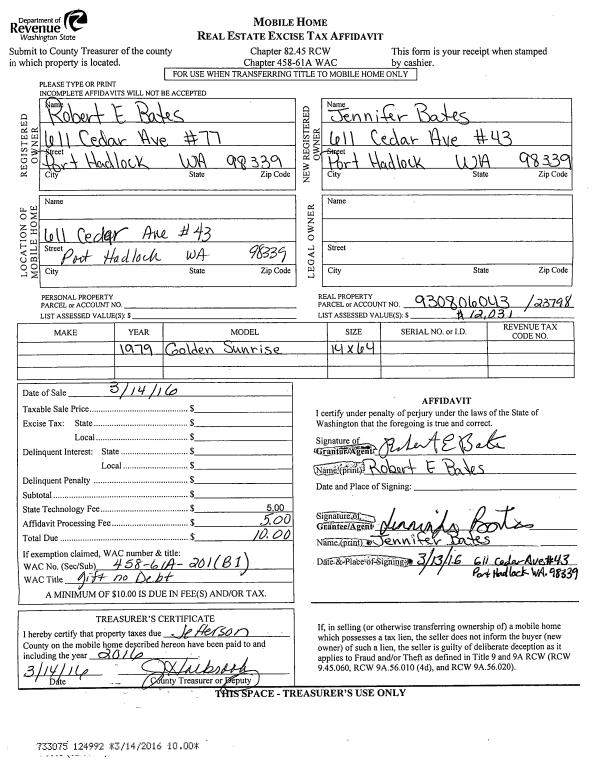 Department of
Revenue
Washington State
MOBILE HOME
REAL ESTATE EXCISE TAX AFFIDAVIT
Submit to County Treasurer of the county
in which property is located.
Chapter 82.45 RCW
Chapter 458-61A WAC
This form is your receipt when stamped
by cashier.
FOR USE WHEN TRANSFERRING TITLE TO MOBILE HOME ONLY
PLEASE TYPE OR PRINT
INCOMPLETE AFFIDAVITS WILL NOT BE ACCEPTED
REGISTERED
OWNER
Name
Robert E Bates
611 Cedar Ave #77
Street
Port Hadlock WA 98339
City State Zip Code
NEW REGISTERED
OWNER
Name
Jennifer Bates
611 Cedar Ave #43
Street
Port Hadlock WA 98339
City State Zip Code
LOCATION OF
MOBILE HOME
Name
611 Cedar Ave #43
Street
Port Hadlock WA 98339
City State Zip Code
LEGAL OWNER
Name
Street
City State Zip Code
PERSONAL PROPERTY
PARCEL or ACCOUNT NO.
LIST ASSESSED VALUE(S): $
REAL PROPERTY
PARCEL or ACCOUNT NO. 930806043 /23798
LIST ASSESSED VALUE(S): $ $12,031
MAKE YEAR MODEL SIZE SERIAL NO. or I.D. REVENUE TAX CODE NO.
1979 Golden Sunrise 14x64
Date of Sale 3/14/16
Taxable Sale Price $
Excise Tax: State $
Local $
Delinquent Interest: State $
Local $
Delinquent Penalty $
Subtotal $
State Technology Fee $ 5.00
Affidavit Processing Fee $ 5.00
Total Due $ 10.00
If exemption claimed, WAC number & title:
WAC No. (Sec/Sub) 458-61A-201(B1)
WAC Title gift no Debt
A MINIMUM OF $10.00 IS DUE IN FEE(S) AND/OR TAX.
AFFIDAVIT
I certify under penalty of perjury under the laws of the State of
Washington that the foregoing is true and correct.
Signature of
Grantor/Agent Robert E Bates
Name (print) Robert E Bates
Date and Place of Signing:
Signature of
Grantee/Agent Jennifer Bates
Name (print) Jennifer Bates
Date & Place of Signing: 3/13/16 611 Cedar Ave. #43
Port Hadlock WA. 98339
TREASURER'S CERTIFICATE
I hereby certify that property taxes due Jefferson
County on the mobile home described hereon have been paid to and
including the year 2016
3/14/16
Date County Treasurer or Deputy
If, in selling (or otherwise transferring ownership of) a mobile home
which possesses a tax lien, the seller does not inform the buyer (new
owner) of such a lien, the seller is guilty of deliberate deception as it
applies to Fraud and/or Theft as defined in Title 9 and 9A RCW (RCW
9.45.060, RCW 9A.56.010 (4d), and RCW 9A.56.020).
THIS SPACE - TREASURER'S USE ONLY
733075 124992 *3/14/2016 10.00*